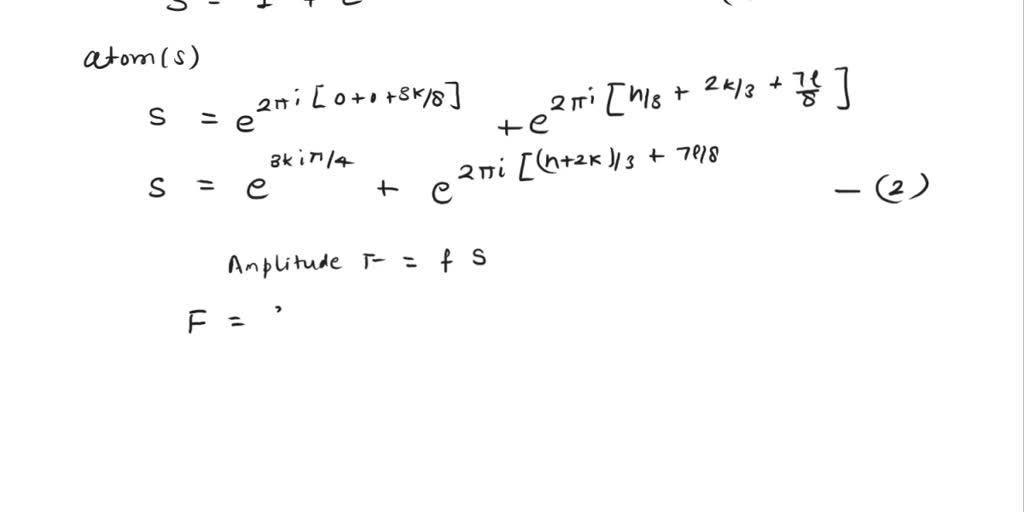 atom(s)
S = e^{2πi [0+0+3k/8]} + e^{2πi [h/3 + 2k/3 + 7l/8]}
S = e^{3kiπ/4} + e^{2πi [(h+2k)/3 + 7l/8} — (2)
Amplitude F = f S
F =